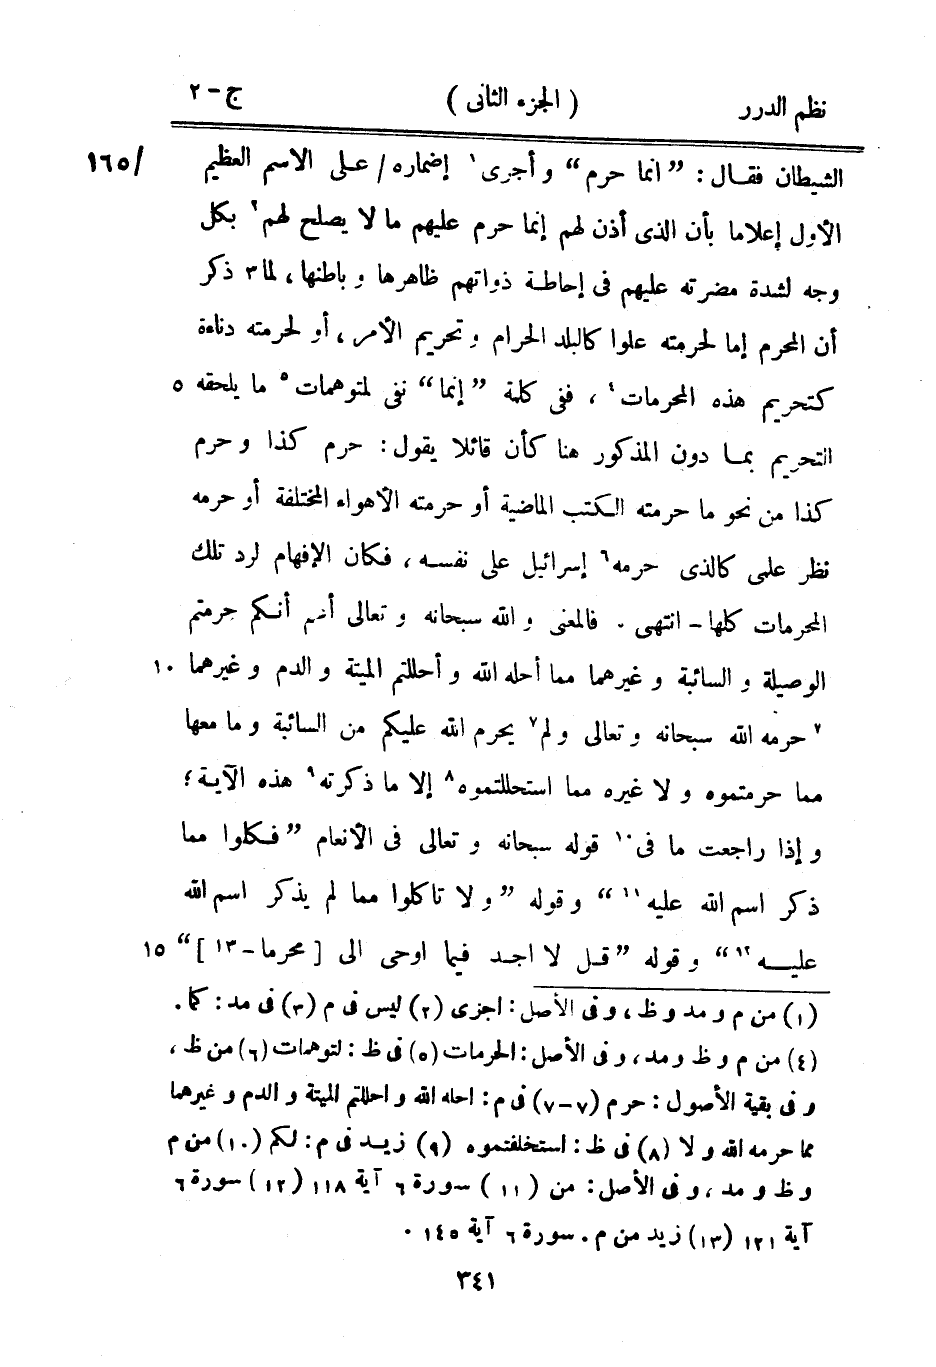 نظم الدرر (الجزء الثانى) ج-٢
الشيطان فقـال: ”انما حرم“ و أجرى١ إضماره/ على الاسم العظيم /١٦٥
الأول إعلاما بأن الذى أذن لهم إنما حرم عليهم ما لا يصلح لهم٢ بكل
وجه لشدة مضرته عليهم فى إحاطة ذواتهم ظاهرها و باطنها، لما٣ ذكر
أن المحرم إما لحرمته علوا كالبلد الحرام و تحريم الأمر، أو لحرمته دناءة
كتحريم هذه المحرمات٤، ففى كلمة ”إنما“ نفى لمتوهمات٥ ما يلحقه ٥
التحريم بمـا دون المذكور هنا كأن قائلا يقول: حرم كذا و حرم
كذا من نحو ما حرمته الكتب الماضية أو حرمته الأهواء المختلفة أو حرمه
نظر علمى كالذى حرمه٦ إسرائيل على نفسه، فكان الإفهام لرد تلك
المحرمات كلها - انتهى. فالمعنى و الله سبحانه و تعالى أنـكم حرمتم
الوصيلة و السائبة و غيرهما مما أحله الله و أحللتم الميتة و الدم و غيرهما ١٠
٧ حرمه الله سبحانه و تعالى و لم٧ يحرم الله عليكم من السائبة و ما معها
مما حرمتموه و لا غيره مما استحللتموه٨ إلا ما ذكرته٩ هذه الآية؛
و إذا راجعت ما فى١٠ قوله سبحانه و تعالى فى الأنعام ”فـكلوا مما
ذكر اسم الله عليه١١“ و قوله ”و لا تاكلوا مما لم يذكر اسم الله
عليـه١٢“ و قوله ”قـل لا اجـد فيما اوحى الى [ محرما-١٣ ]“ ١٥
(١) من م و مد و ظ، و فى الأصل: اجزى (٢) ليس فى م (٣) فى مد: كما.
(٤) من م و ظ و مد، و فى الأصل: الحرمات (٥) فى ظ: لتوهمات (٦) من ظ،
و فى بقية الأصول: حرم (٧-٧) فى م: احله الله و احللتم الميتة و الدم و غيرهما
مما حرمه الله و لا (٨) فى ظ: استخلفتموه (٩) زيـد فى م: لكم (١٠) من م
و ظ و مد، و فى الأصل: من (١١) سورة ٦ آية ١١٨ (١٢) سورة ٦
آية ١٢١ (١٣) زيد من م. سورة ٦ آية ١٤٥.
٣٤١